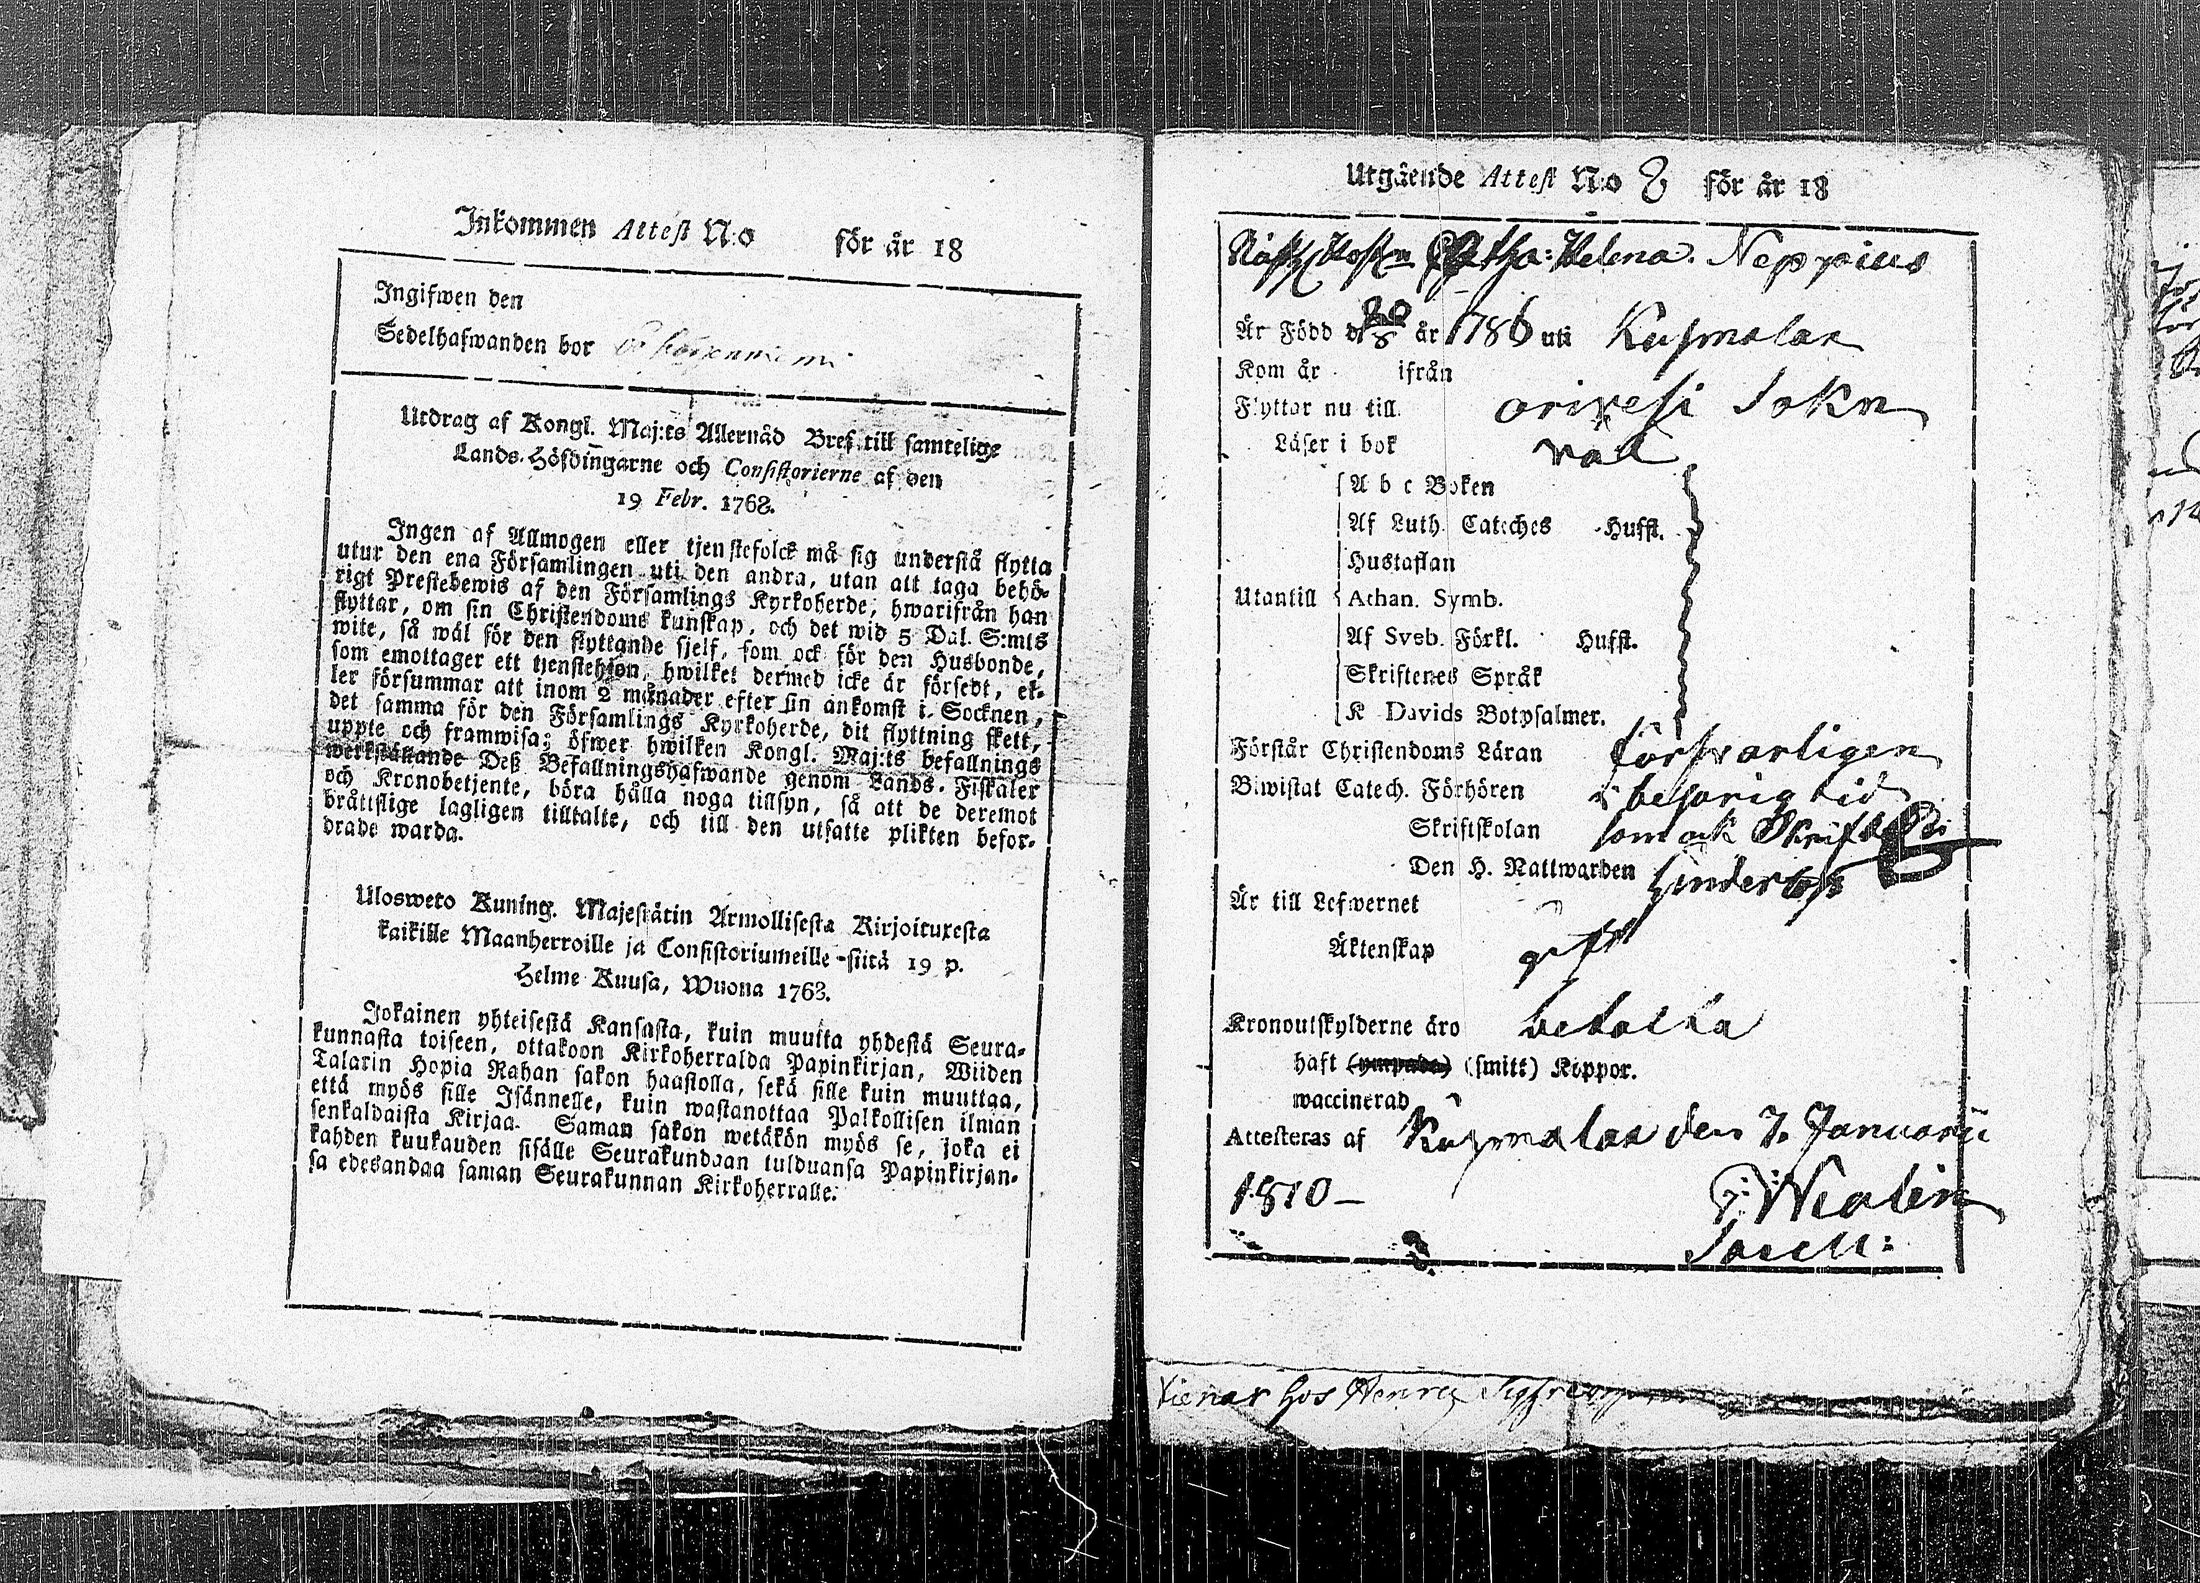 Inkommen Attest N:o för år 18
Ingifwen den
Sedelhafwanden bor
Utdrag af Kongl. Maj:ts Allernåd Bref till samtelige
Lands-Höfdingarne och Consistorierne af den
19 Febr. 1768.
Ingen af Allmogen eller tjenstefolck må sig understå flytta
utur den ena Församlingen uti den andra, utan att taga behö-
rigt Prestebewis af den Församlings Kyrkoherde, hwarifrån han
flyttar, om sin Christendoms kunskap, och det wid 5 Dal. S:mts
wite, så wäl för den flyttande sjelf, som ock för den Husbonde,
som emottager ett tjenstehjon, hwilket dermed icke är försedt, el-
ler försummar att inom 2 månader efter sin ankomst i Socknen,
det samma för den Församlings Kyrkoherde, dit flyttning skett,
uppte och framwisa; öfwer hwilken Kongl. Maj:ts befallnings
werkställande Deß Befallningshafwande genom Lands-Fiskaler
och Kronobetjente, böra hålla noga tillsyn, så att de deremot
bråttslige lagligen tilltalte, och till den utsatte plikten befor-
drade warda.
Ulosweto Kuning. Majestätin Armollisesta Kirjoituxesta
kaikille Maanherroille ja Consistoriumeille siitä 19 p.
Helme Kuusa, Wuona 1768.
Jokainen yhteisestä Kansasta, kuin muutta yhdestä Seura-
kunnasta toiseen, ottakoon Kirkoherralda Papinkirjan, Wiiden
Talarin Hopia Rahan sakon haastolla, sekä sille kuin muuttaa,
että myös sille Isännelle, kuin wastanottaa Palkollisen ilman
senkaldaista Kirjaa. Saman sakon wetäkön myös se, joka ei
kahden kuukauden sisälle Seurakundaan tulduansa Papinkirjan-
sa edesandaa saman Seurakunnan Kirkoherralle.
Utgående Attest N:o 8 för år 18
Helena. Neppius
Är Född d 20/8 år 1786 uti Kusmolax
Kom år ifrån
Flyttar nu till. orivesi Sokn
Läser i bok väl
A b c Boken
Af Luth. Cateches Husst.
Hustaflan
Utantill Athan. Symb.
Af Sveb. Förkl. Husst.
Skriftenes Språk
K Davids Botpsalmer.
Förstår Christendoms Läran försvarligen
Biwistat Catech. Förhören i behörig tid
Skriftskolan som ock
Den H. Nattwarden
Är till Lefwernet hinderlös
Äktenskap gift
Kronoutskylderne äro betalta
haft (smitt) Koppor.
waccinerad
Attesteras af Kusmolax den 7. Januarii
1810 –
Sacell:
tienar hos Henric